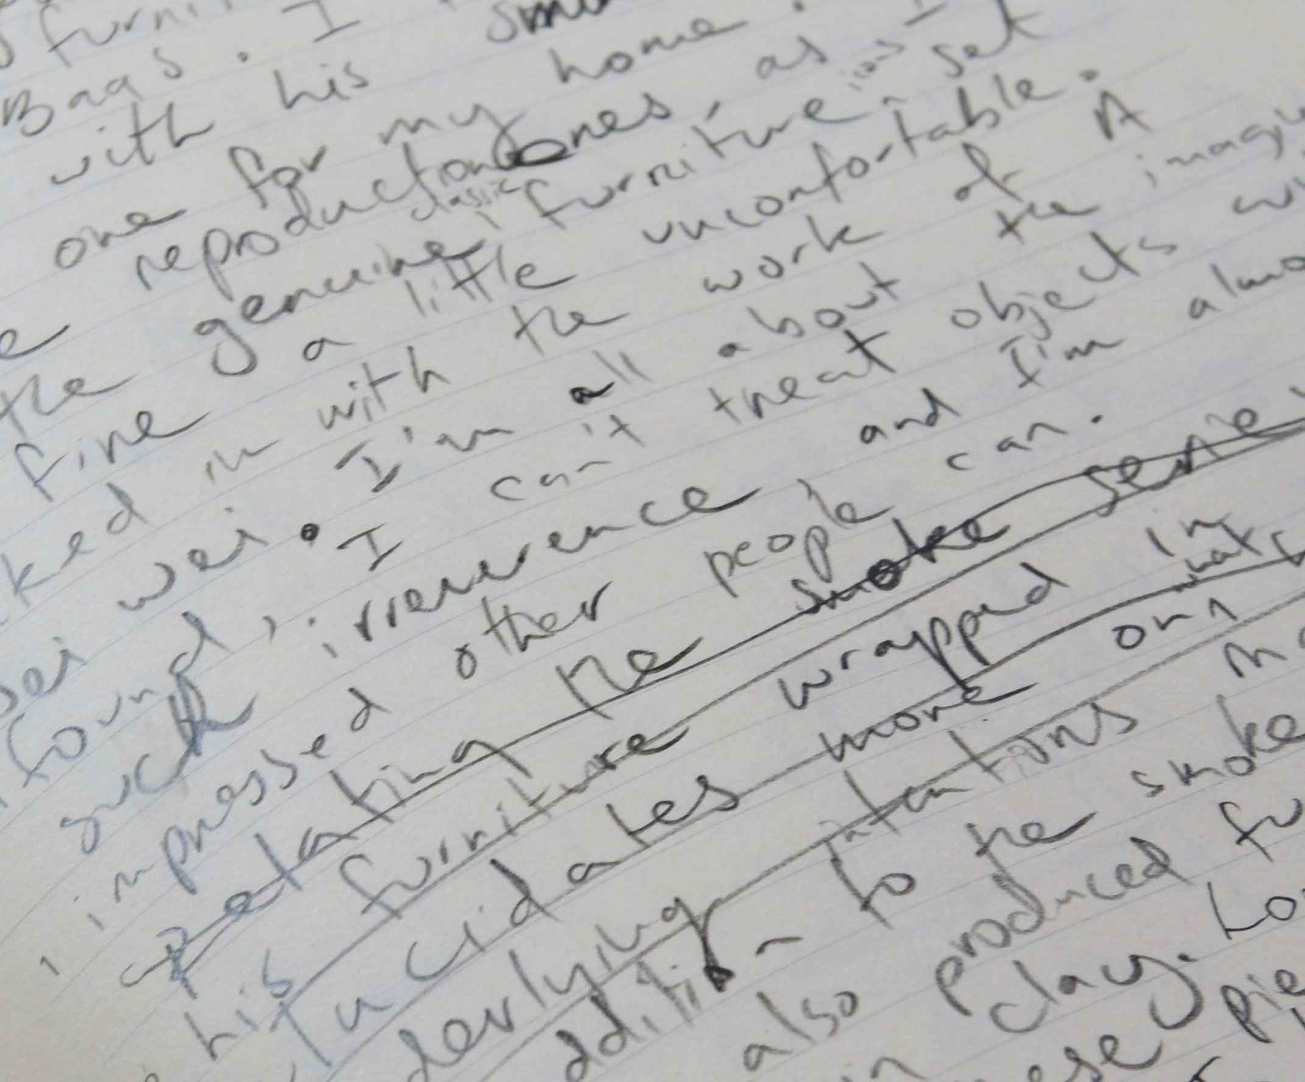 furni
Baas. I
with his smo
one for my home.
reproduction ones, as I
the genuine classic furniture icons set
fine a little uncomfortable.
ked in with the work of A
wei. I'm all about the imagi
found, I can't treat objects wi
such irreverence and I'm almo
impressed other people can.
the smoke serie
his furniture wrapped in
lucidates more on what
derlying intentions
ddition to the smoke
also produced fu
in clay. Lo
ese pie